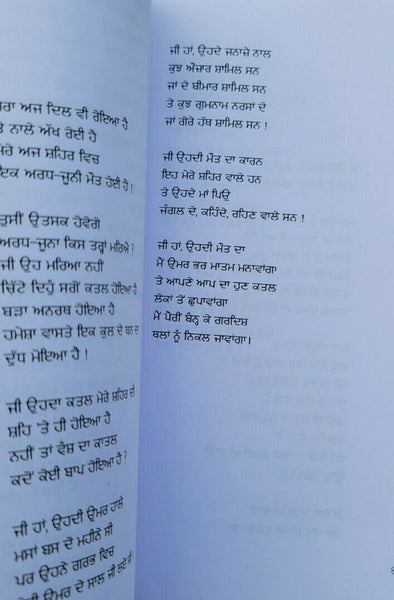 ਅਜ ਦਿਲ ਵੀ ਰੋਇਆ ਹੈ
ਨਾਲੇ ਅੱਖ ਰੋਈ ਹੈ
ਅਜ ਸ਼ਹਿਰ ਵਿਚ
ਇਕ ਅਰਧ-ਜੂਨੀ ਮੌਤ ਹੋਈ ਹੈ !
ਤੁਸੀਂ ਉਤਸਕ ਹੋਵੋਗੇ
ਅਰਧ-ਜੂਨਾ ਕਿਸ ਤਰ੍ਹਾਂ ਮਰਿਐ ?
ਜੀ ਉਹ ਮਰਿਆ ਨਹੀਂ
ਚਿੱਟੇ ਦਿਹੁੰ ਸਗੋਂ ਕਤਲ ਹੋਇਆ ਹੈ
ਬੜਾ ਅਨਰਥ ਹੋਇਆ ਹੈ
ਹਮੇਸ਼ਾ ਵਾਸਤੇ ਇਕ ਕੁਲ ਦੇ ਥਨ ਦਾ
ਦੁੱਧ ਮੋਇਆ ਹੈ !
ਜੀ ਉਹਦਾ ਕਤਲ ਮੇਰੇ ਸ਼ਹਿਰ ਦੀ
ਸ਼ਹਿ 'ਤੇ ਹੀ ਹੋਇਆ ਹੈ
ਨਹੀਂ ਤਾਂ ਵੰਸ਼ ਦਾ ਕਾਤਲ
ਕਦੋਂ ਕੋਈ ਬਾਪ ਹੋਇਆ ਹੈ ?
ਜੀ ਹਾਂ, ਉਹਦੀ ਉਮਰ ਹਾਲੇ
ਮਸਾਂ ਬਸ ਦੋ ਮਹੀਨੇ ਸੀ
ਪਰ ਉਹਨੇ ਗਰਭ ਵਿਚ
ਉਮਰ ਦੇ ਸਾਲ ਜੀ
ਜੀ ਹਾਂ, ਉਹਦੇ ਜਨਾਜ਼ੇ ਨਾਲ
ਕੁਝ ਔਜ਼ਾਰ ਸ਼ਾਮਿਲ ਸਨ
ਜਾਂ ਦੋ ਬੀਮਾਰ ਸ਼ਾਮਿਲ ਸਨ
ਤੇ ਕੁਝ ਗੁਮਨਾਮ ਨਰਸਾਂ ਦੇ
ਜਾਂ ਗੋਰੇ ਹੱਥ ਸ਼ਾਮਿਲ ਸਨ !
ਜੀ ਉਹਦੀ ਮੌਤ ਦਾ ਕਾਰਨ
ਇਹ ਮੇਰੇ ਸ਼ਹਿਰ ਵਾਲੇ ਹਨ
ਤੇ ਉਹਦੇ ਮਾਂ ਪਿਉ
ਜੰਗਲ ਦੇ, ਕਹਿੰਦੇ, ਰਹਿਣ ਵਾਲੇ ਸਨ !
ਜੀ ਹਾਂ, ਉਹਦੀ ਮੌਤ ਦਾ
ਮੈਂ ਉਮਰ ਭਰ ਮਾਤਮ ਮਨਾਵਾਂਗਾ
ਤੇ ਆਪਣੇ ਆਪ ਦਾ ਹੁਣ ਕਤਲ
ਲੋਕਾਂ ਤੋਂ ਛੁਪਾਵਾਂਗਾ
ਮੈਂ ਪੈਰੀਂ ਬੰਨ੍ਹ ਕੇ ਗਰਦਿਸ਼
ਥਲਾਂ ਨੂੰ ਨਿਕਲ ਜਾਵਾਂਗਾ।